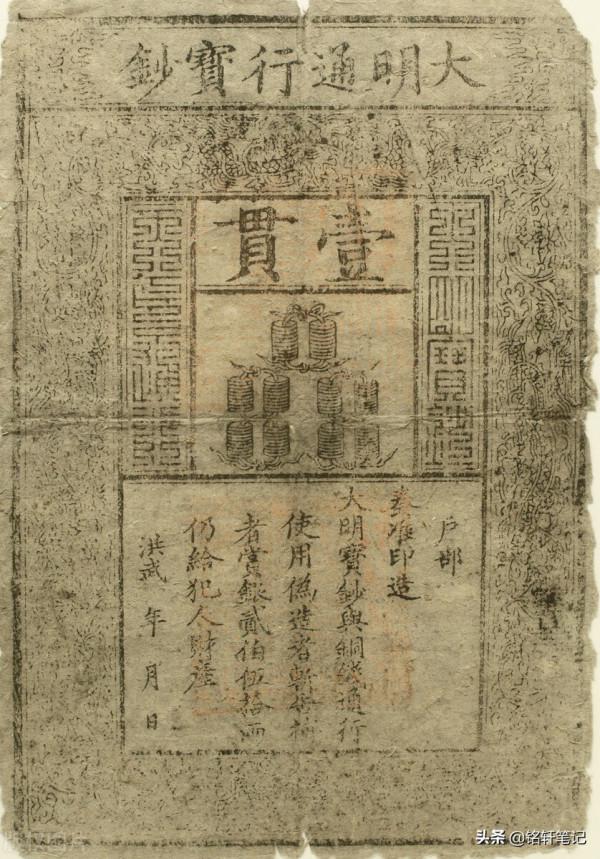 大明通行寶鈔
壹貫
大明寶鈔
天下通行
戶部
奏准印造
大明寶鈔與銅錢通行
使用偽造者斬告捕
者賞銀貳伯伍拾兩
仍給犯人財產
洪武 年 月 日
头条 @铭轩笔记